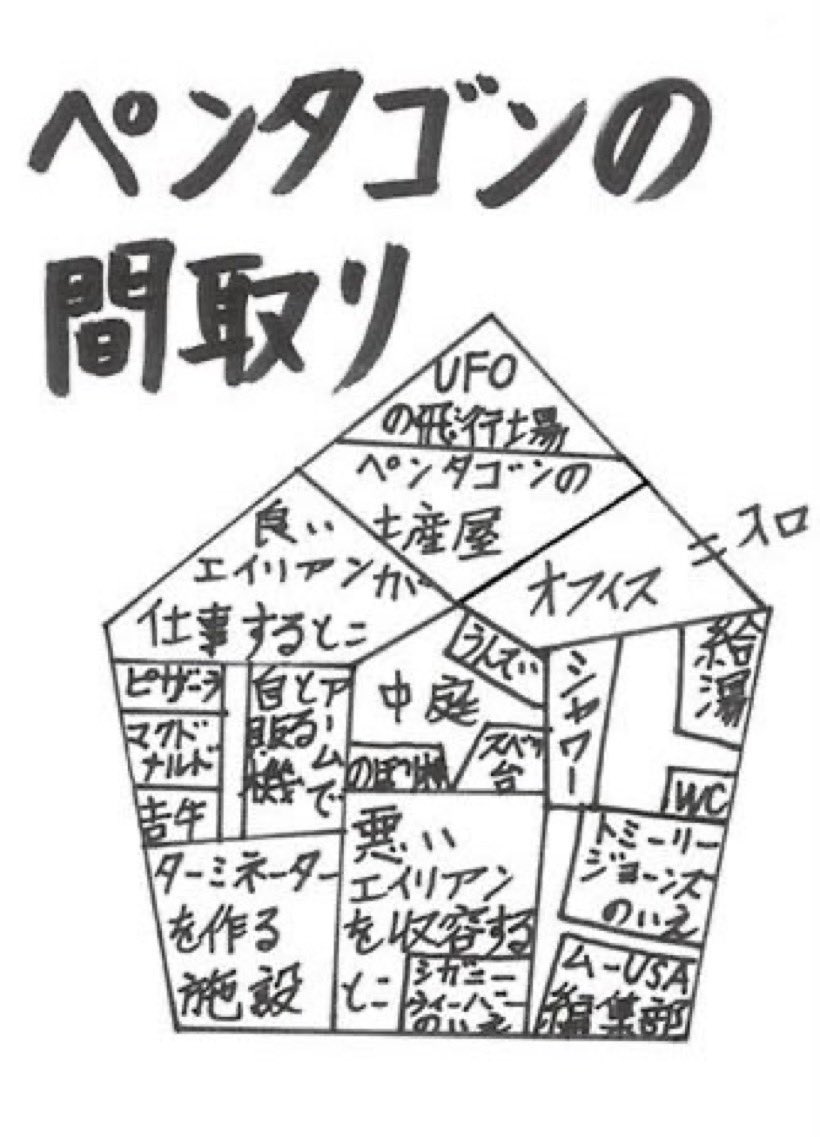 ペンタゴンの
間取り
UFO
の飛行場
ペンタゴンの
土産屋
オフィス
ニスロ
良い
エイリアンが
仕事するとこ
ピザーラ
マクド
ナルド
吉牛
アームで
とる
自販機
中庭
うんてい
スベり
台
のぼり棒
シャワー
給湯
WC
ターミネーター
を作る
施設
悪い
エイリアン
を収容する
とこ
シガニー
ウィーバー
のいえ
トミーリー
ジョーンズ
のいえ
ムーUSA
編集部